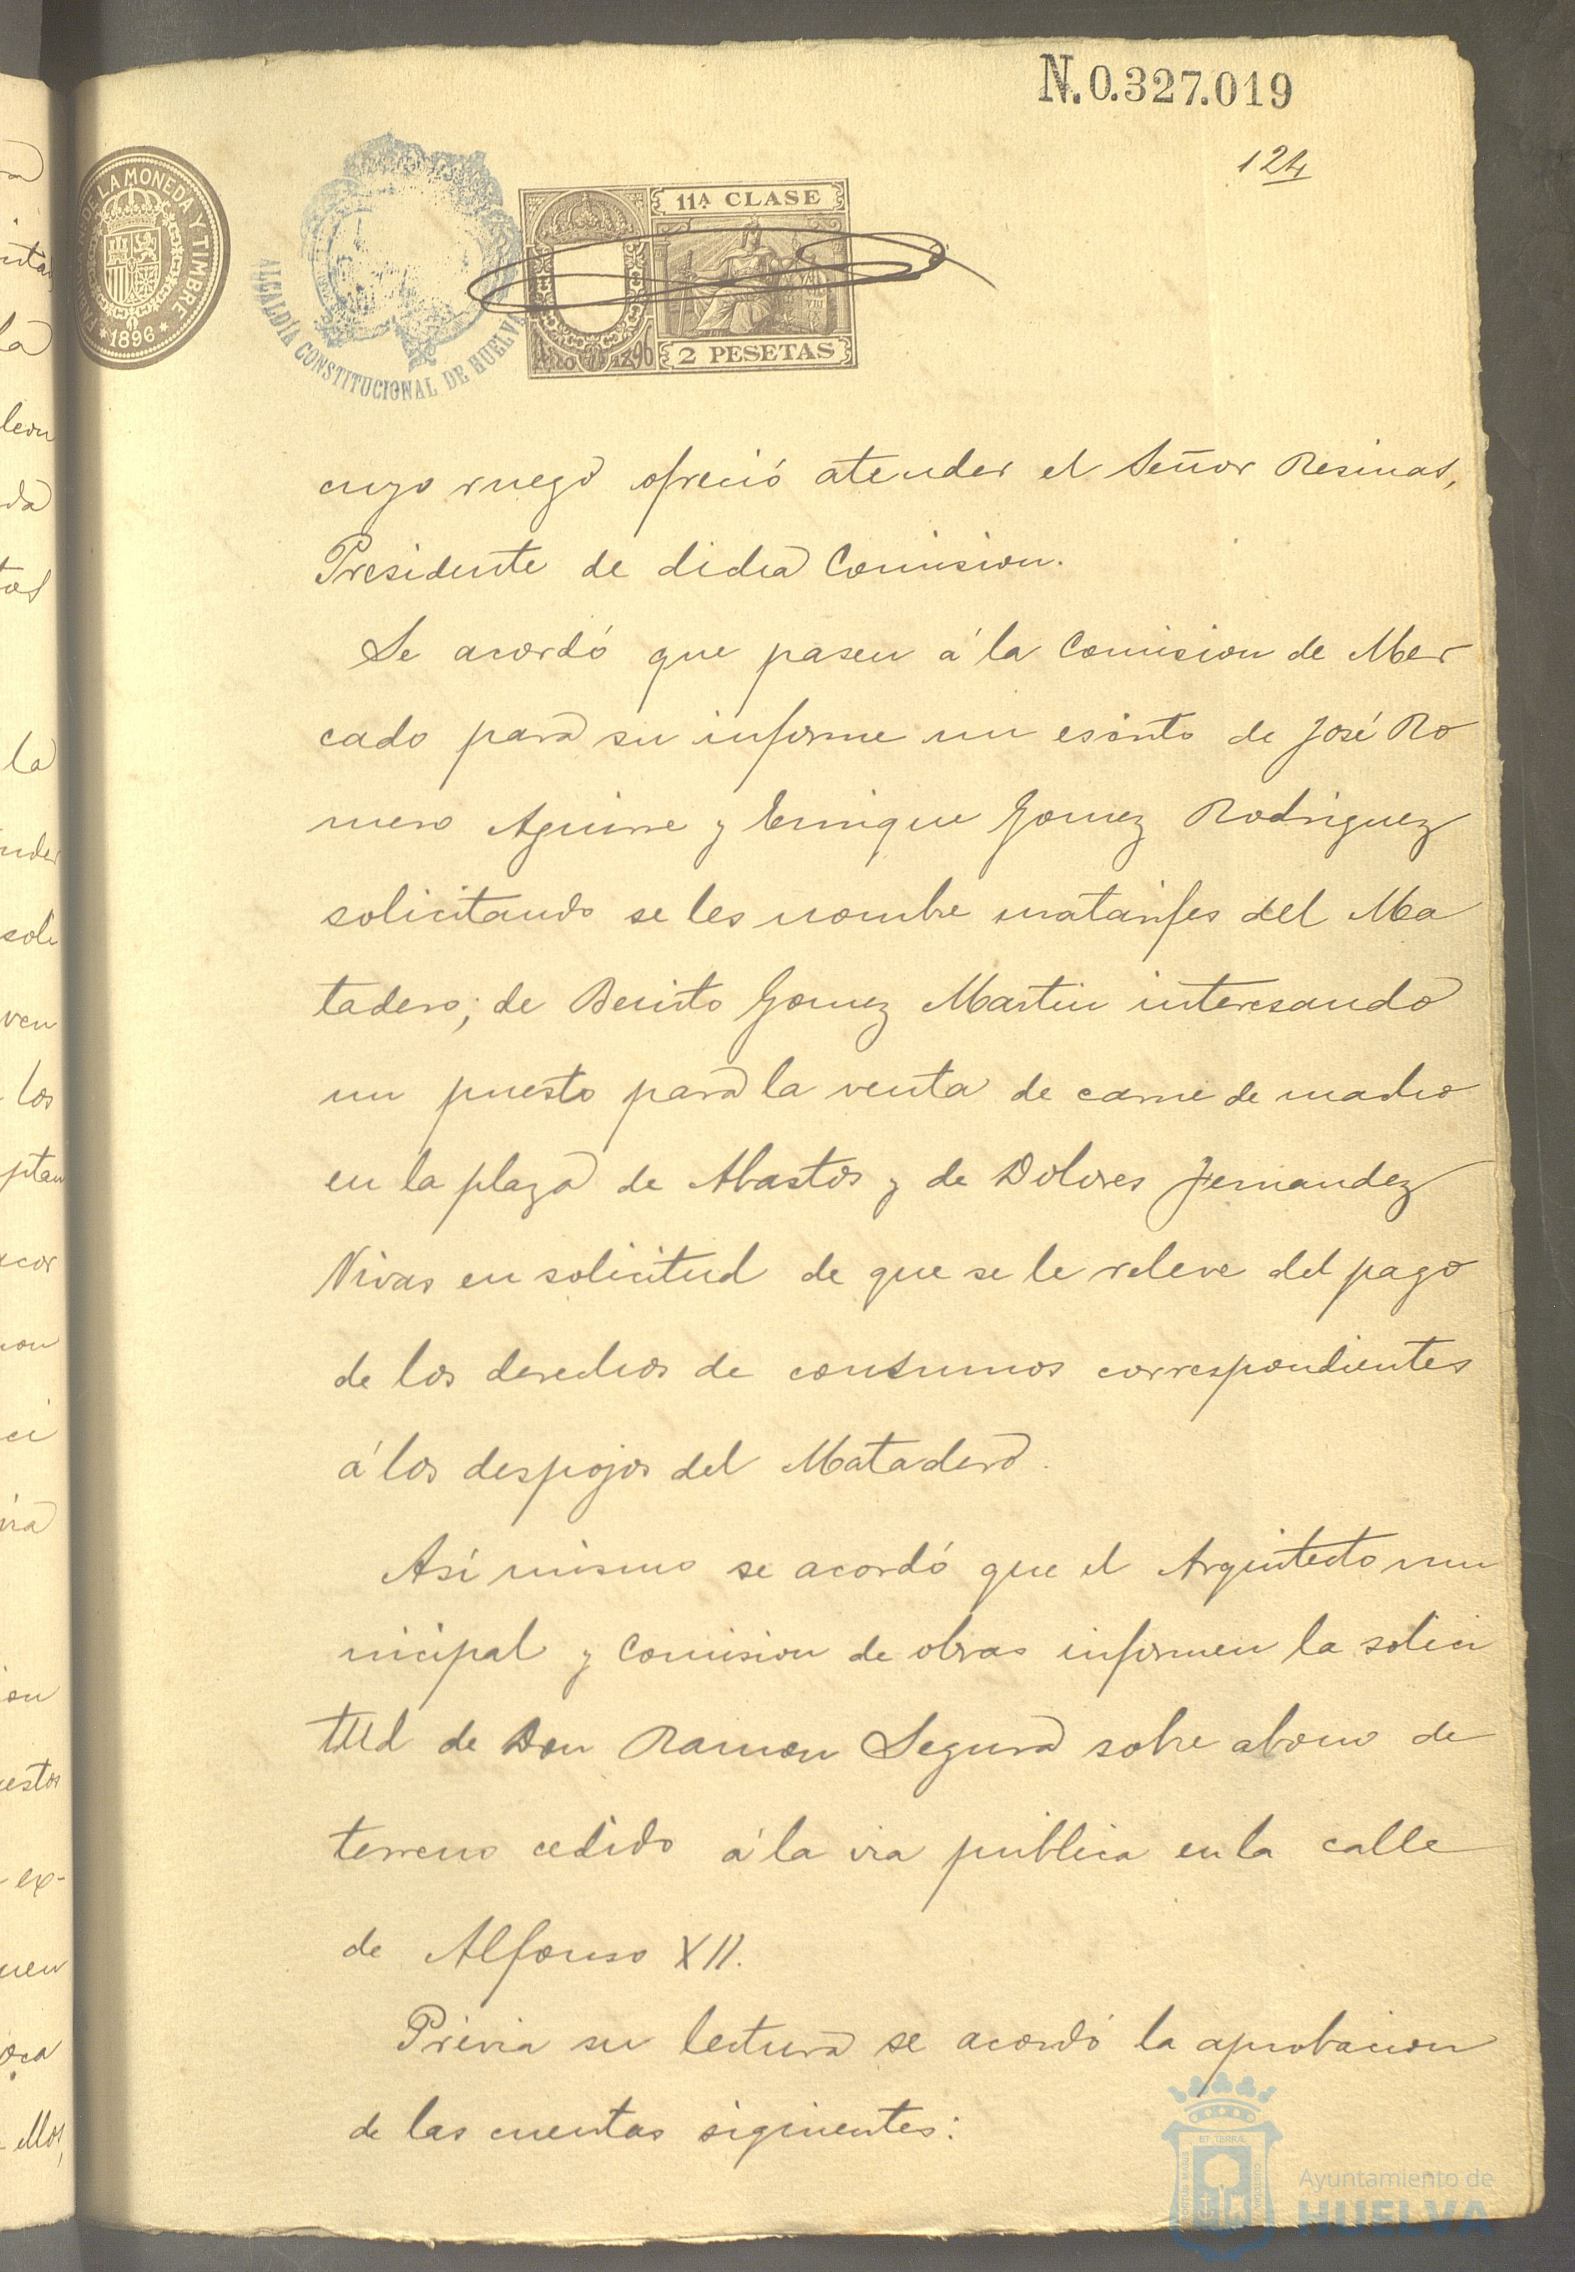 N.0.327.019
124
FABRICA N. DE LA MONEDA Y TIMBRE
*1896*
ALCALDÍA CONSTITUCIONAL DE HUELVA
11ª CLASE
2 PESETAS
cuyo ruego ofreció atender el Señor Resinas,
Presidente de dicha Comision.
Se acordó que pasen á la Comision de Mer
cado para su informe un escrito de José Ro
mero Aguirre y Enrique Gomez Rodriguez
solicitando se les nombre matarifes del Ma
tadero; de Benito Gomez Martin interesando
un puesto para la venta de carne de macho
en la plaza de Abastos y de Dolores Fernandez
Vivas en solicitud de que se le releve del pago
de los derechos de consumos correspondientes
á los despojos del Matadero.
Asi mismo se acordó que el Arquitecto mu
nicipal y Comision de obras informen la solici
tud de Don Ramon Segura sobre abono de
terreno cedido á la via publica en la calle
de Alfonso XII.
Previa su lectura se acordó la aprobacion
de las cuentas siguientes:
Ayuntamiento de
HUELVA